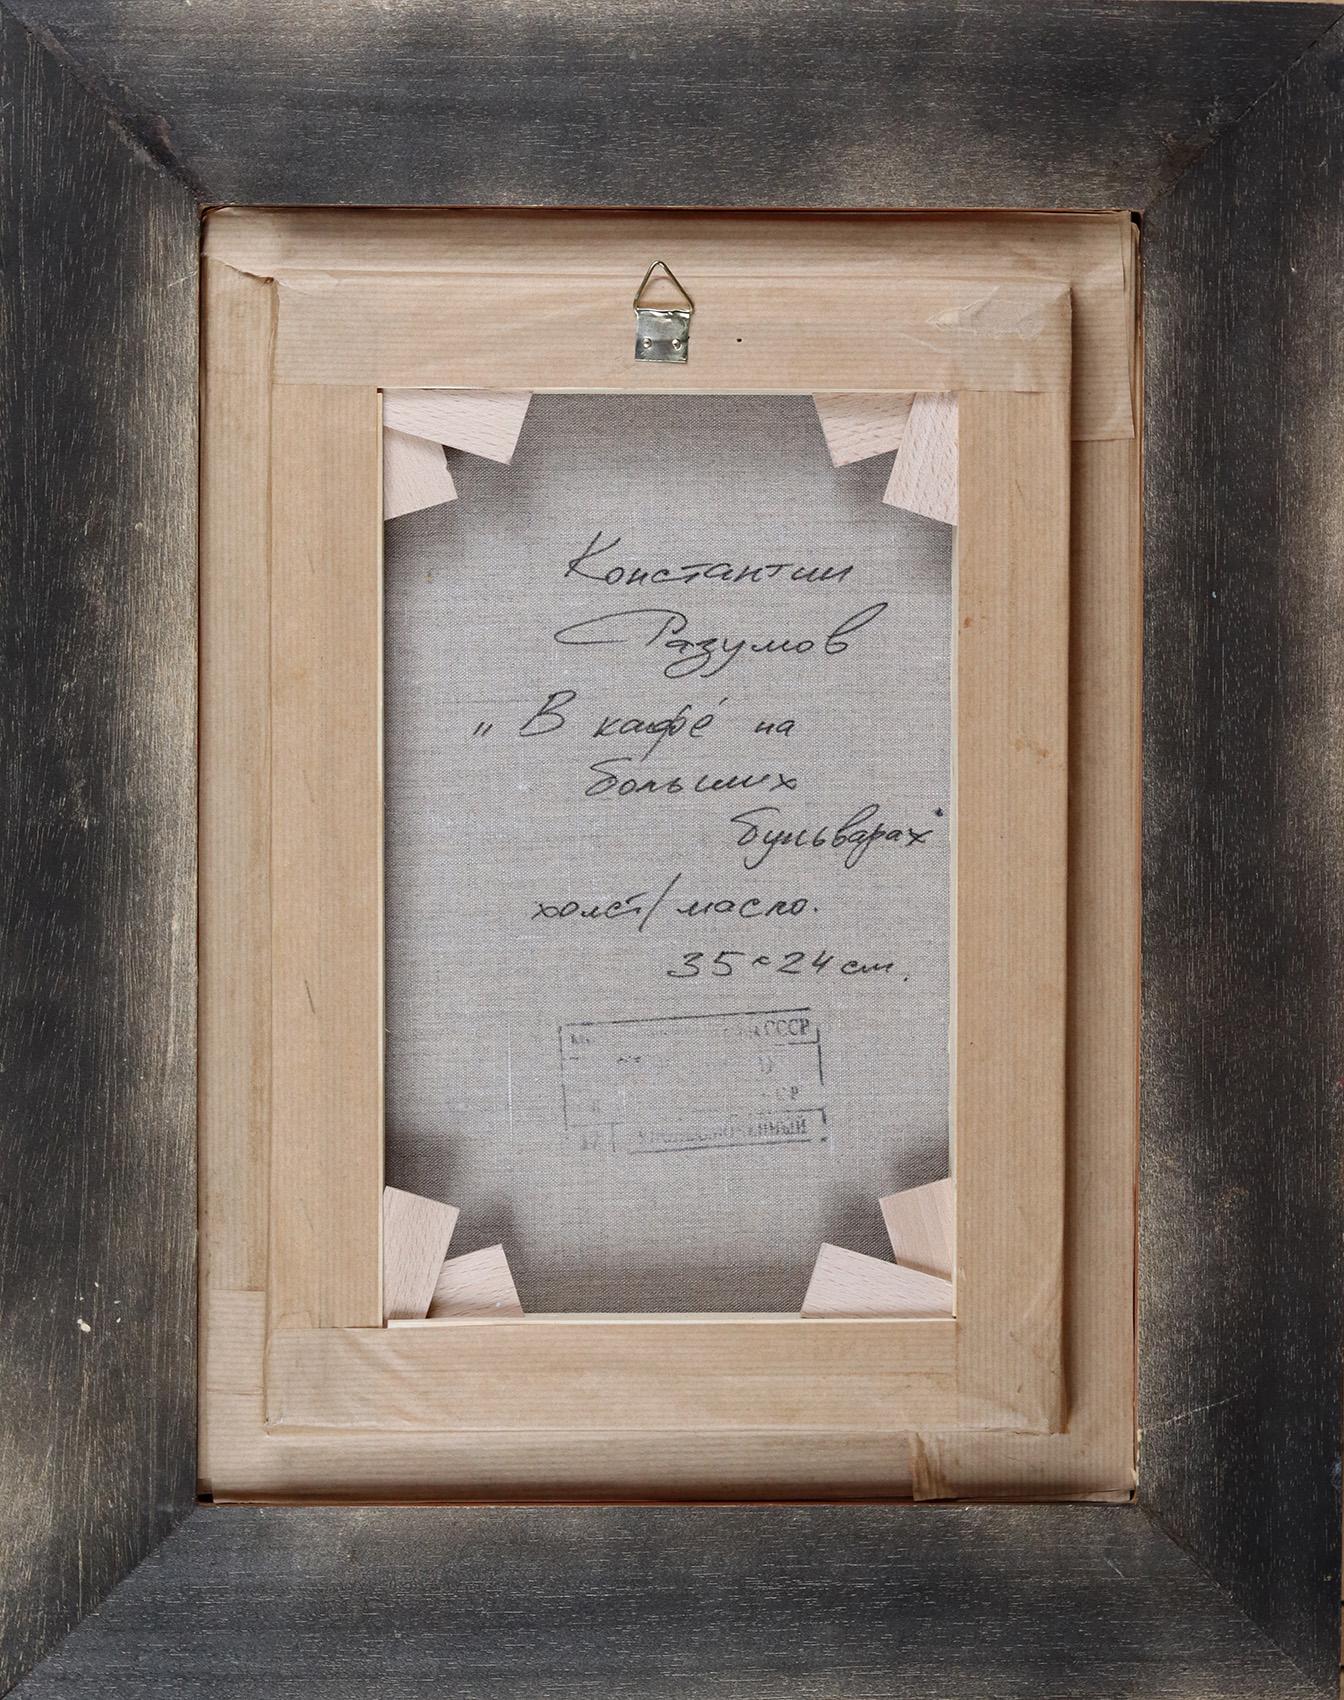 Константин
Разумов
„ В кафе́ на
больших
бульварах"
холст/масло.
35 × 24 см.
СССР